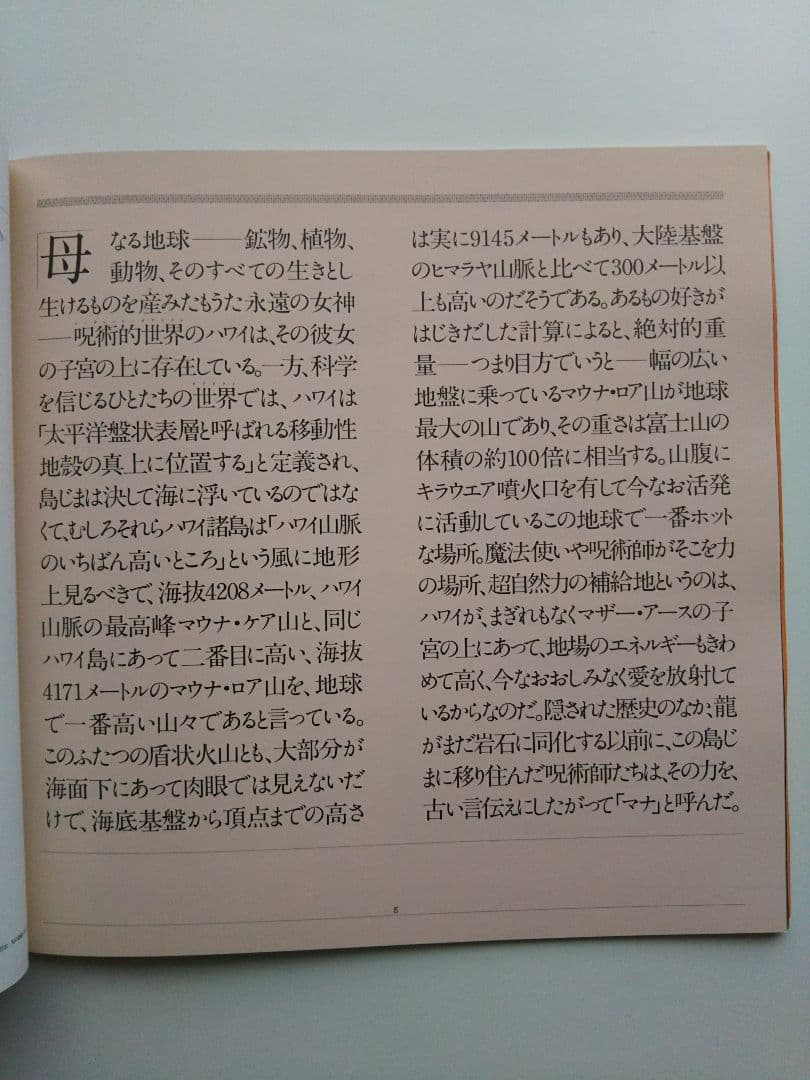 母なる地球——鉱物、植物、
動物、そのすべての生きとし
生けるものを産みたもうた永遠の女神
——呪術的世界のハワイは、その彼女
の子宮の上に存在している。一方、科学
を信じるひとたちの世界では、ハワイは
「太平洋盤状表層と呼ばれる移動性
地殻の真上に位置する」と定義され、
島じまは決して海に浮いているのではな
くて、むしろそれらハワイ諸島は「ハワイ山脈
のいちばん高いところ」という風に地形
上見るべきで、海抜4208メートル、ハワイ
山脈の最高峰マウナ・ケア山と、同じ
ハワイ島にあって二番目に高い、海抜
4171メートルのマウナ・ロア山を、地球
で一番高い山々であると言っている。
このふたつの盾状火山とも、大部分が
海面下にあって肉眼では見えないだ
けで、海底基盤から頂点までの高さ
は実に9145メートルもあり、大陸基盤
のヒマラヤ山脈と比べて300メートル以
上も高いのだそうである。あるもの好きが
はじきだした計算によると、絶対的重
量——つまり目方でいうと——幅の広い
地盤に乗っているマウナ・ロア山が地球
最大の山であり、その重さは富士山の
体積の約100倍に相当する。山腹に
キラウエア噴火口を有して今なお活発
に活動しているこの地球で一番ホット
な場所。魔法使いや呪術師がそこを力
の場所、超自然力の補給地というのは、
ハワイが、まぎれもなくマザー・アースの子
宮の上にあって、地場のエネルギーもきわ
めて高く、今なおおしみなく愛を放射して
いるからなのだ。隠された歴史のなか、龍
がまだ岩石に同化する以前に、この島じ
まに移り住んだ呪術師たちは、その力を、
古い言伝えにしたがって「マナ」と呼んだ。